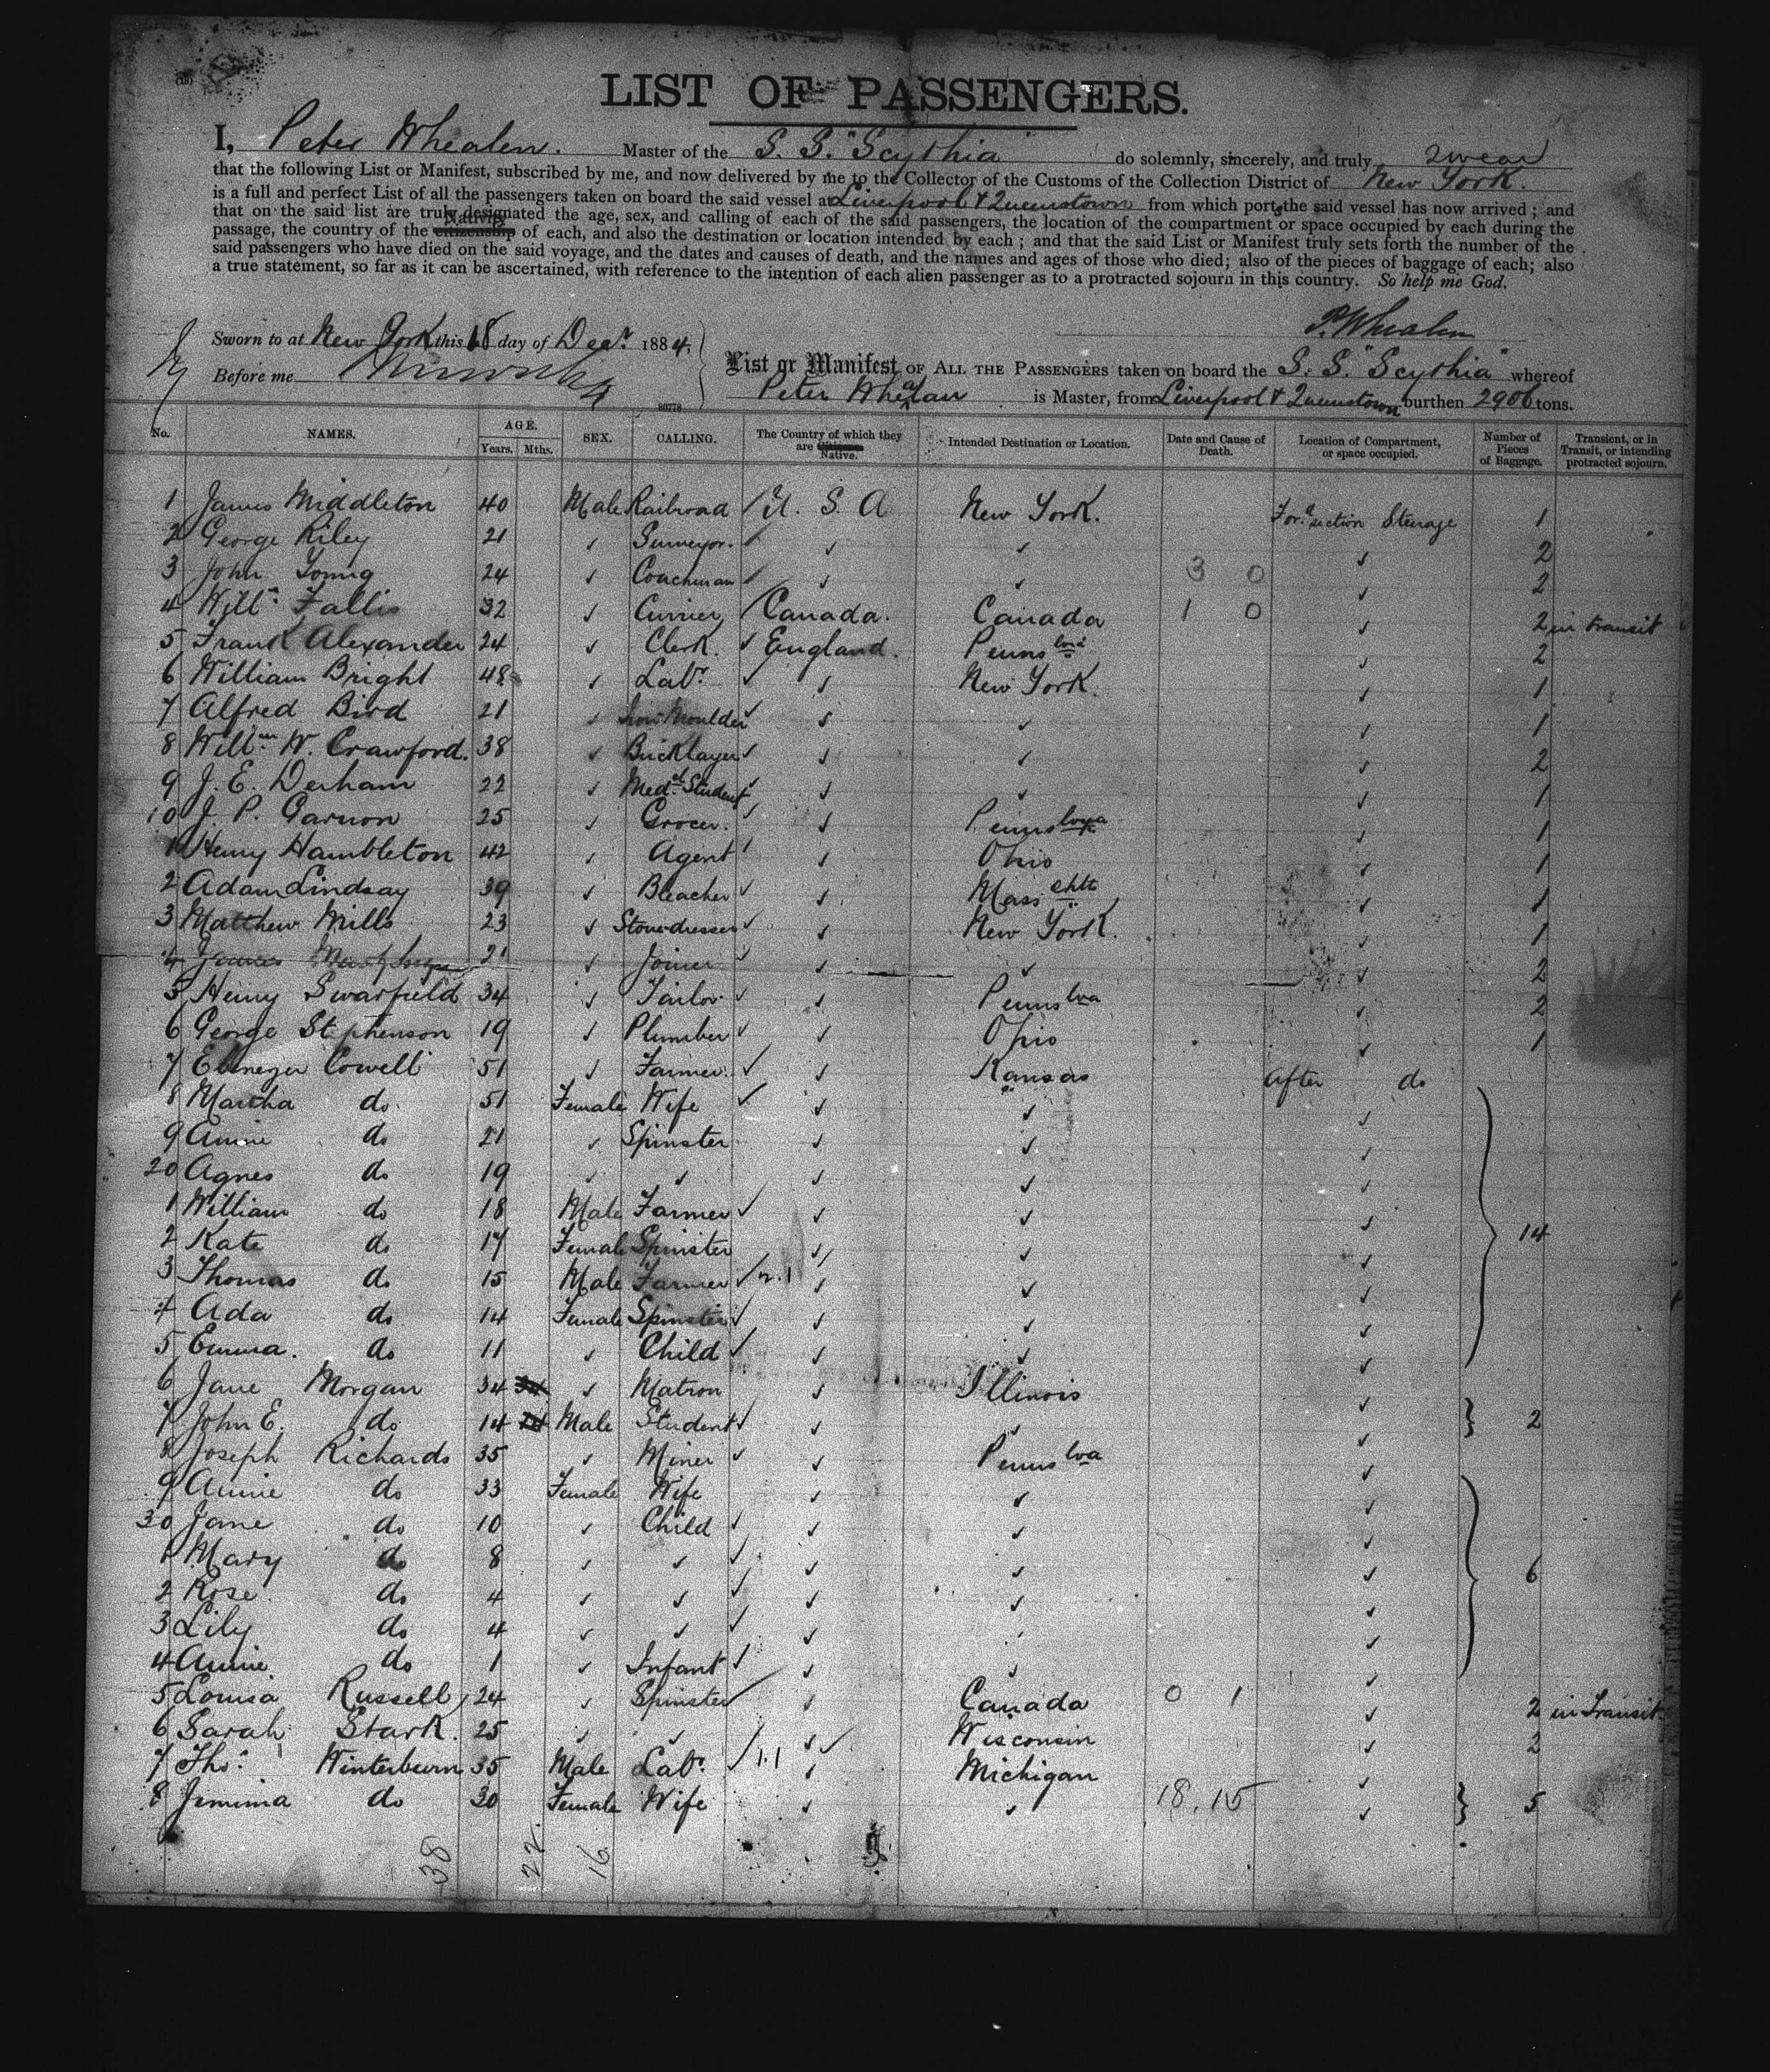 LIST OF PASSENGERS.
I, Peter Whealen. Master of the S. S. "Scythia" do solemnly, sincerely, and truly swear
that the following List or Manifest, subscribed by me, and now delivered by me to the Collector of the Customs of the Collection District of New York.
is a full and perfect List of all the passengers taken on board the said vessel at Liverpool & Queenstown from which ports the said vessel has now arrived; and
that on the said list are truly designated the age, sex, and calling of each of the said passengers, the location of the compartment or space occupied by each during the
passage, the country of the citizenship Nativity of each, and also the destination or location intended by each; and that the said List or Manifest truly sets forth the number of the
said passengers who have died on the said voyage, and the dates and causes of death, and the names and ages of those who died; also of the pieces of baggage of each; also
a true statement, so far as it can be ascertained, with reference to the intention of each alien passenger as to a protracted sojourn in this country. So help me God.
P. Whealen
Sworn to at New York this 18 day of Decr. 1884,
Before me
List or Manifest OF ALL THE PASSENGERS taken on board the S. S. "Scythia" whereof
Peter Whealan is Master, from Liverpool & Queenstown burthen 2906 tons.
80778
No. NAMES. AGE. Years. Mths. SEX. CALLING. The Country of which they are Citizens. Native. Intended Destination or Location. Date and Cause of Death. Location of Compartment, or space occupied. Number of Pieces of Baggage. Transient, or in Transit, or intending protracted sojourn.
1 James Middleton 40 Male Railroad / U. S. A New York. Ford section Steerage 1
2 George Riley 21 ✓ Surveyor. ✓ ✓ ✓ ✓ 2
3 John Young 24 ✓ Coachman ✓ ✓ ✓ 3 0 ✓ 2
4 Willm. Fallis 32 ✓ Currier / Canada. Canada 1 0 ✓ 2 in transit
5 Frank Alexander 24 ✓ Clerk. ✓ England. Pennslva ✓ 2
6 William Bright 48 ✓ Labr. ✓ ✓ New York. ✓ 1
7 Alfred Bird 21 ✓ Iron Moulder ✓ ✓ ✓ ✓ 1
8 Willm. W. Crawford. 38 ✓ Bricklayer ✓ ✓ ✓ ✓ 2
9 J. E. Derham 22 ✓ Medl. Student ✓ ✓ ✓ ✓ 1
10 J. P. Garnon 25 ✓ Grocer. ✓ ✓ Pennslva ✓ 1
1 Henry Hambleton 42 ✓ Agent ✓ ✓ Ohio ✓ 1
2 Adam Lindsay 39 ✓ Bleacher ✓ ✓ Masschtts ✓ 1
3 Matthew Mills 23 ✓ Stonedresser ✓ ✓ New York. ✓ 1
4 James 21 ✓ Joiner ✓ ✓ ✓ ✓ 2
5 Henry Swarfield 34 ✓ Tailor ✓ ✓ Pennslva ✓ 2
6 George Stephenson 19 ✓ Plumber ✓ ✓ Ohio ✓ 1
7 Ebenezer Cowell 51 ✓ Farmer. ✓ ✓ Kansas After do
8 Martha do. 51 Female Wife ✓ ✓ ✓ ✓
9 Annie do 21 ✓ Spinster ✓ ✓ ✓
20 Agnes do 19 ✓ ✓ ✓ ✓ ✓
1 William do 18 Male Farmer ✓ ✓ ✓ ✓
2 Kate do 17 Female Spinster ✓ ✓ ✓ 14
3 Thomas do 15 Male Farmer ✓ 2.1 ✓ ✓ ✓
4 Ada do 14 Female Spinster ✓ ✓ ✓ ✓
5 Emma. do 11 ✓ Child ✓ ✓ ✓ ✓
6 Jane Morgan 34 34 ✓ Matron ✓ Illinois ✓
7 John E. do 14 14 Male Student ✓ ✓ ✓ ✓ 2
8 Joseph Richards 35 ✓ Miner ✓ ✓ Pennslva ✓
9 Annie do 33 Female Wife ✓ ✓ ✓
30 Jane do 10 ✓ Child ✓ ✓ ✓ ✓
1 Mary do 8 ✓ ✓ ✓ ✓ ✓ ✓ 6
2 Rose do 4 ✓ ✓ ✓ ✓ ✓ ✓
3 Lily do 4 ✓ ✓ ✓ ✓ ✓ ✓
4 Annie do 1 ✓ Infant ✓ ✓ ✓ ✓
5 Louisa Russell 24 ✓ Spinster ✓ ✓ Canada 0 1 ✓ 2 in Transit
6 Sarah Stark. 25 ✓ ✓ ✓ ✓ Wisconsin ✓ 2
7 Thos. Winterburn 35 Male Labr. / 1.1 ✓ Michigan ✓
8 Jemima do 30 Female Wife ✓ ✓ 18.15 ✓ 5
38 22. 16